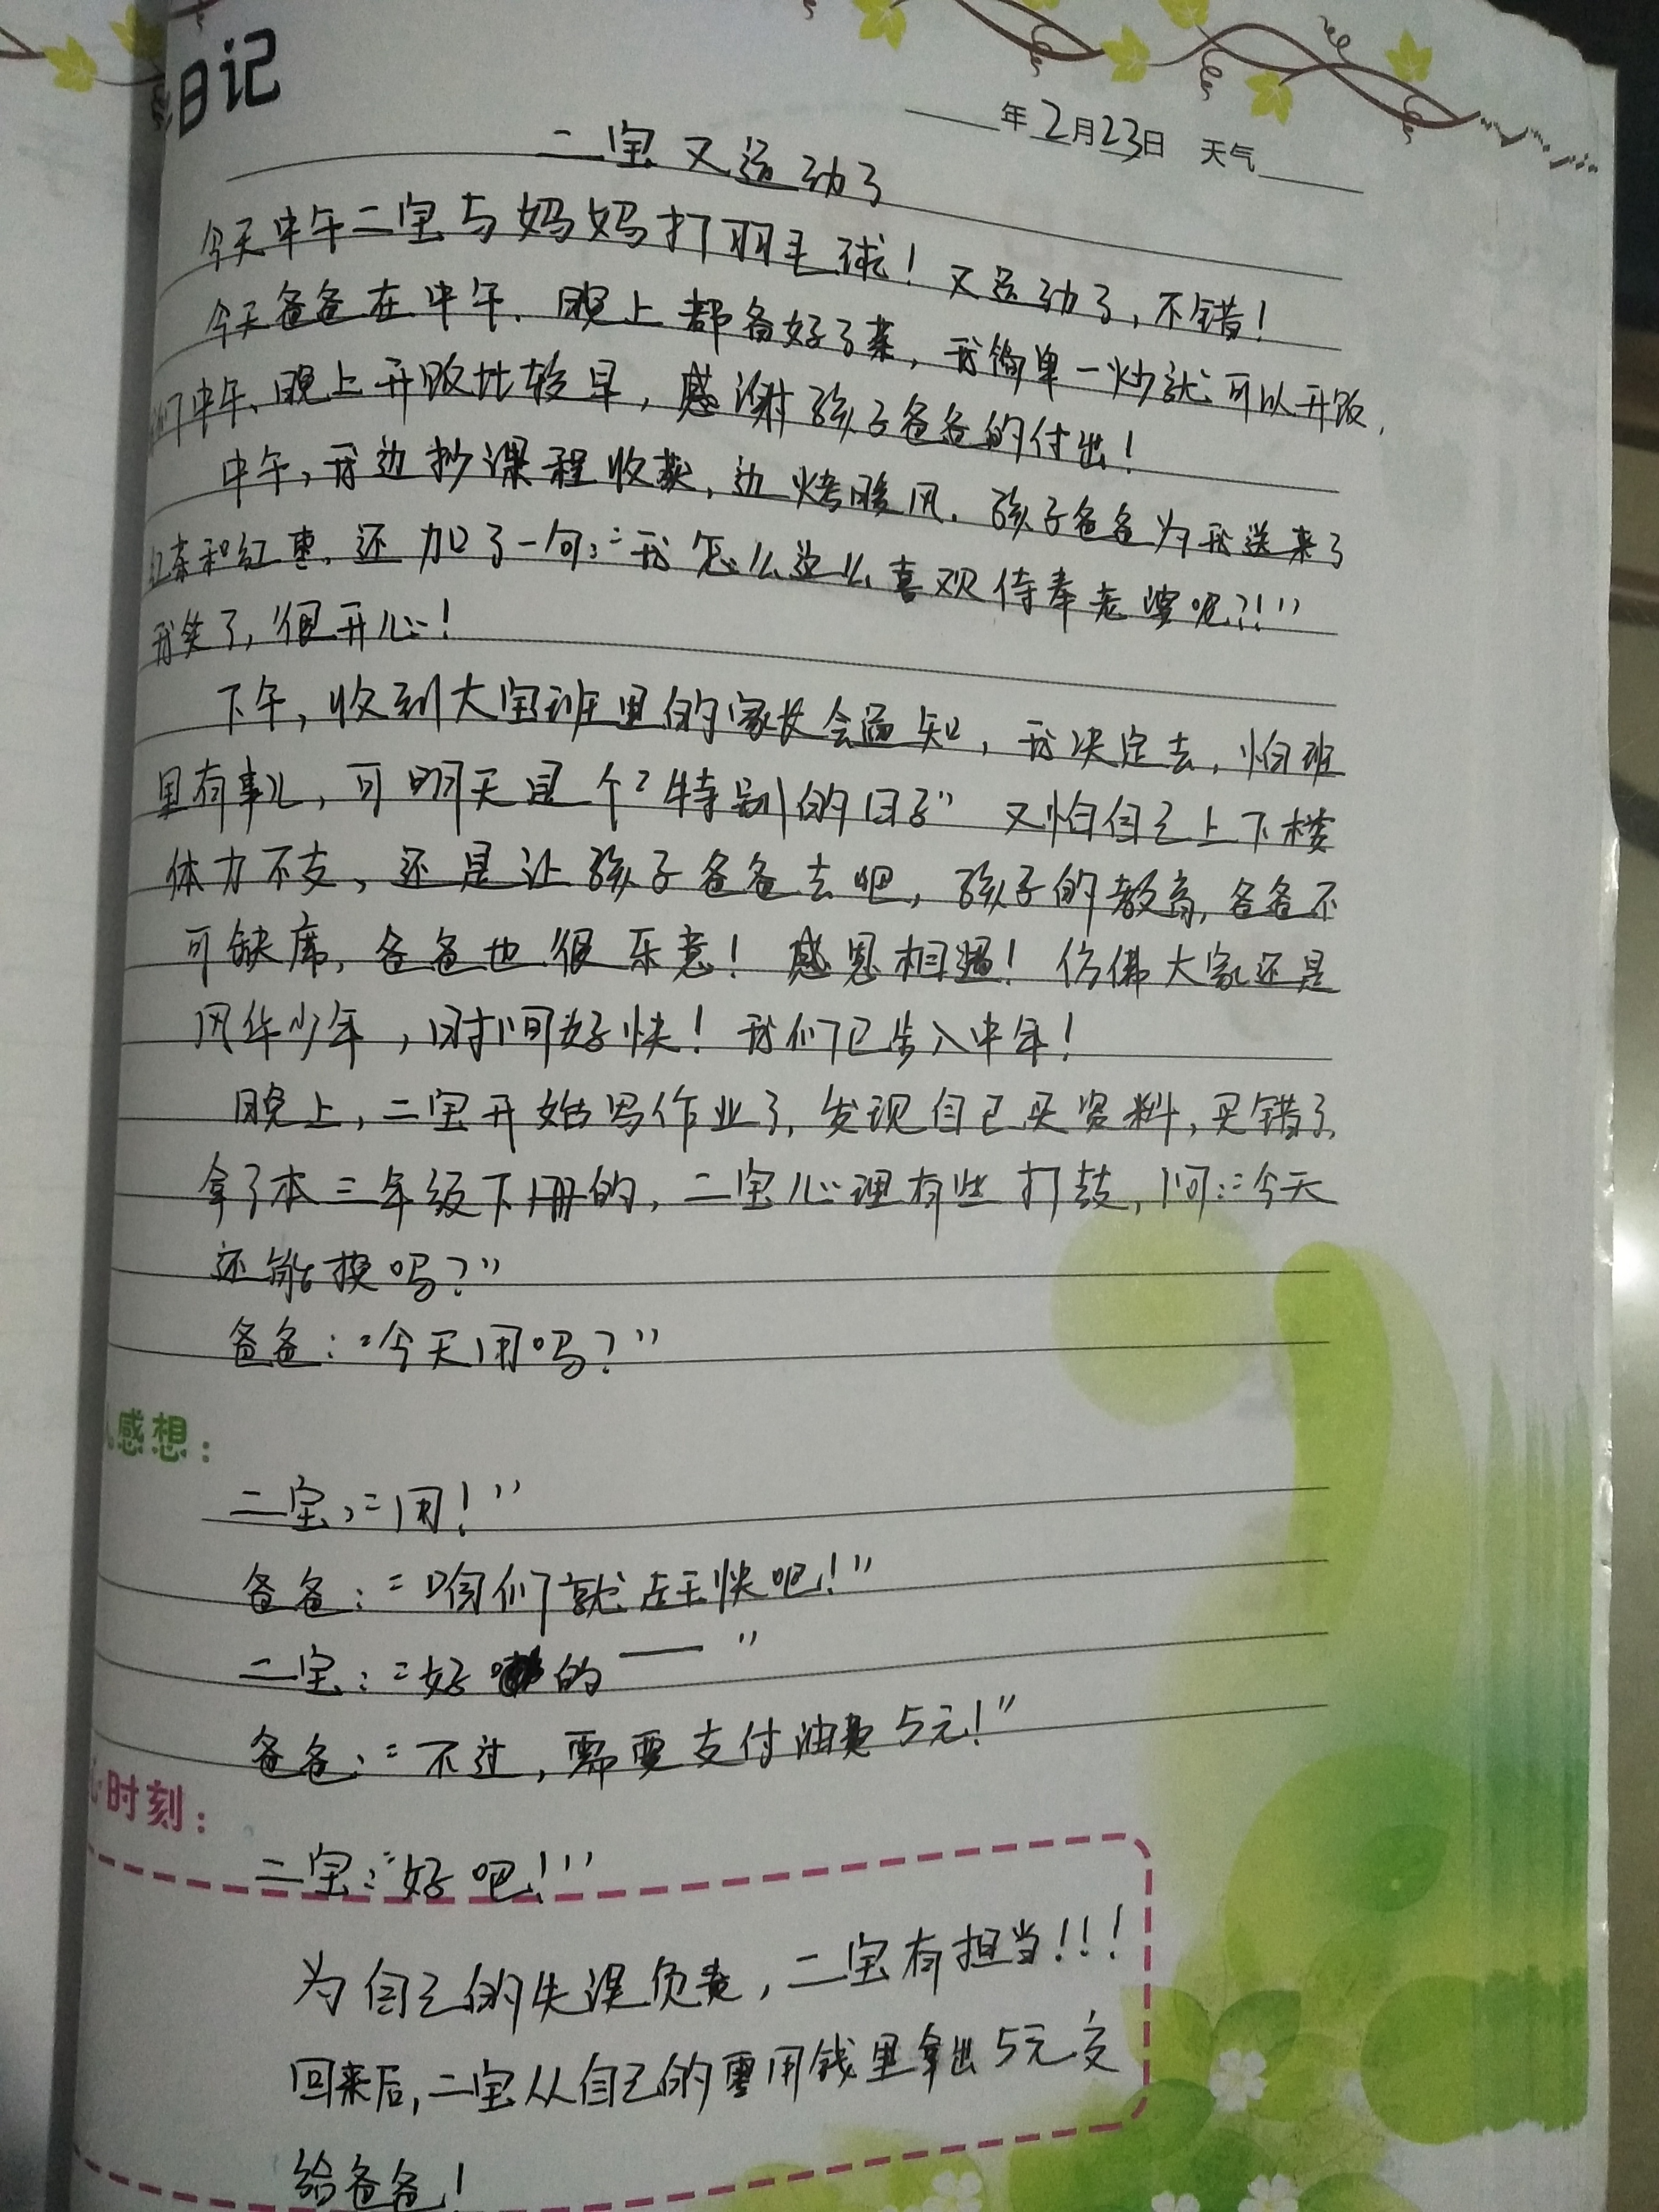 日记
年2月23日 天气
二宝又运动了
今天中午二宝与妈妈打羽毛球！又运动了，不错！
今天爸爸在中午、晚上都备好了菜，我简单一炒就可以开饭，
们中午、晚上开饭比较早，感谢孩子爸爸的付出！
中午，我边抄课程收获，边烤暖风，孩子爸爸为我送来了
茶和红枣，还加了一句：“我怎么这么喜欢侍奉老婆呢？！”
我笑了，很开心！
下午，收到大宝班里的家长会通知，我决定去，怕班
里有事儿，可明天是个“特别的日子”又怕自己上下楼
体力不支，还是让孩子爸爸去吧，孩子的教育，爸爸不
可缺席，爸爸也很乐意！感恩相遇！仿佛大家还是
风华少年，时间好快！我们已步入中年！
晚上，二宝开始写作业了，发现自己买资料，买错了，
拿了本三年级下册的，二宝心理有些打鼓，问：“今天
还能换吗？”
爸爸：“今天用吗？”
感想：
二宝：“用！”
爸爸：“咱们就赶快吧！”
二宝：“好的——”
爸爸：“不过，需要支付油费5元！”
时刻：
二宝：“好吧！”
为自己的失误负责，二宝有担当！！！
回来后，二宝从自己的零用钱里拿出5元交
给爸爸！